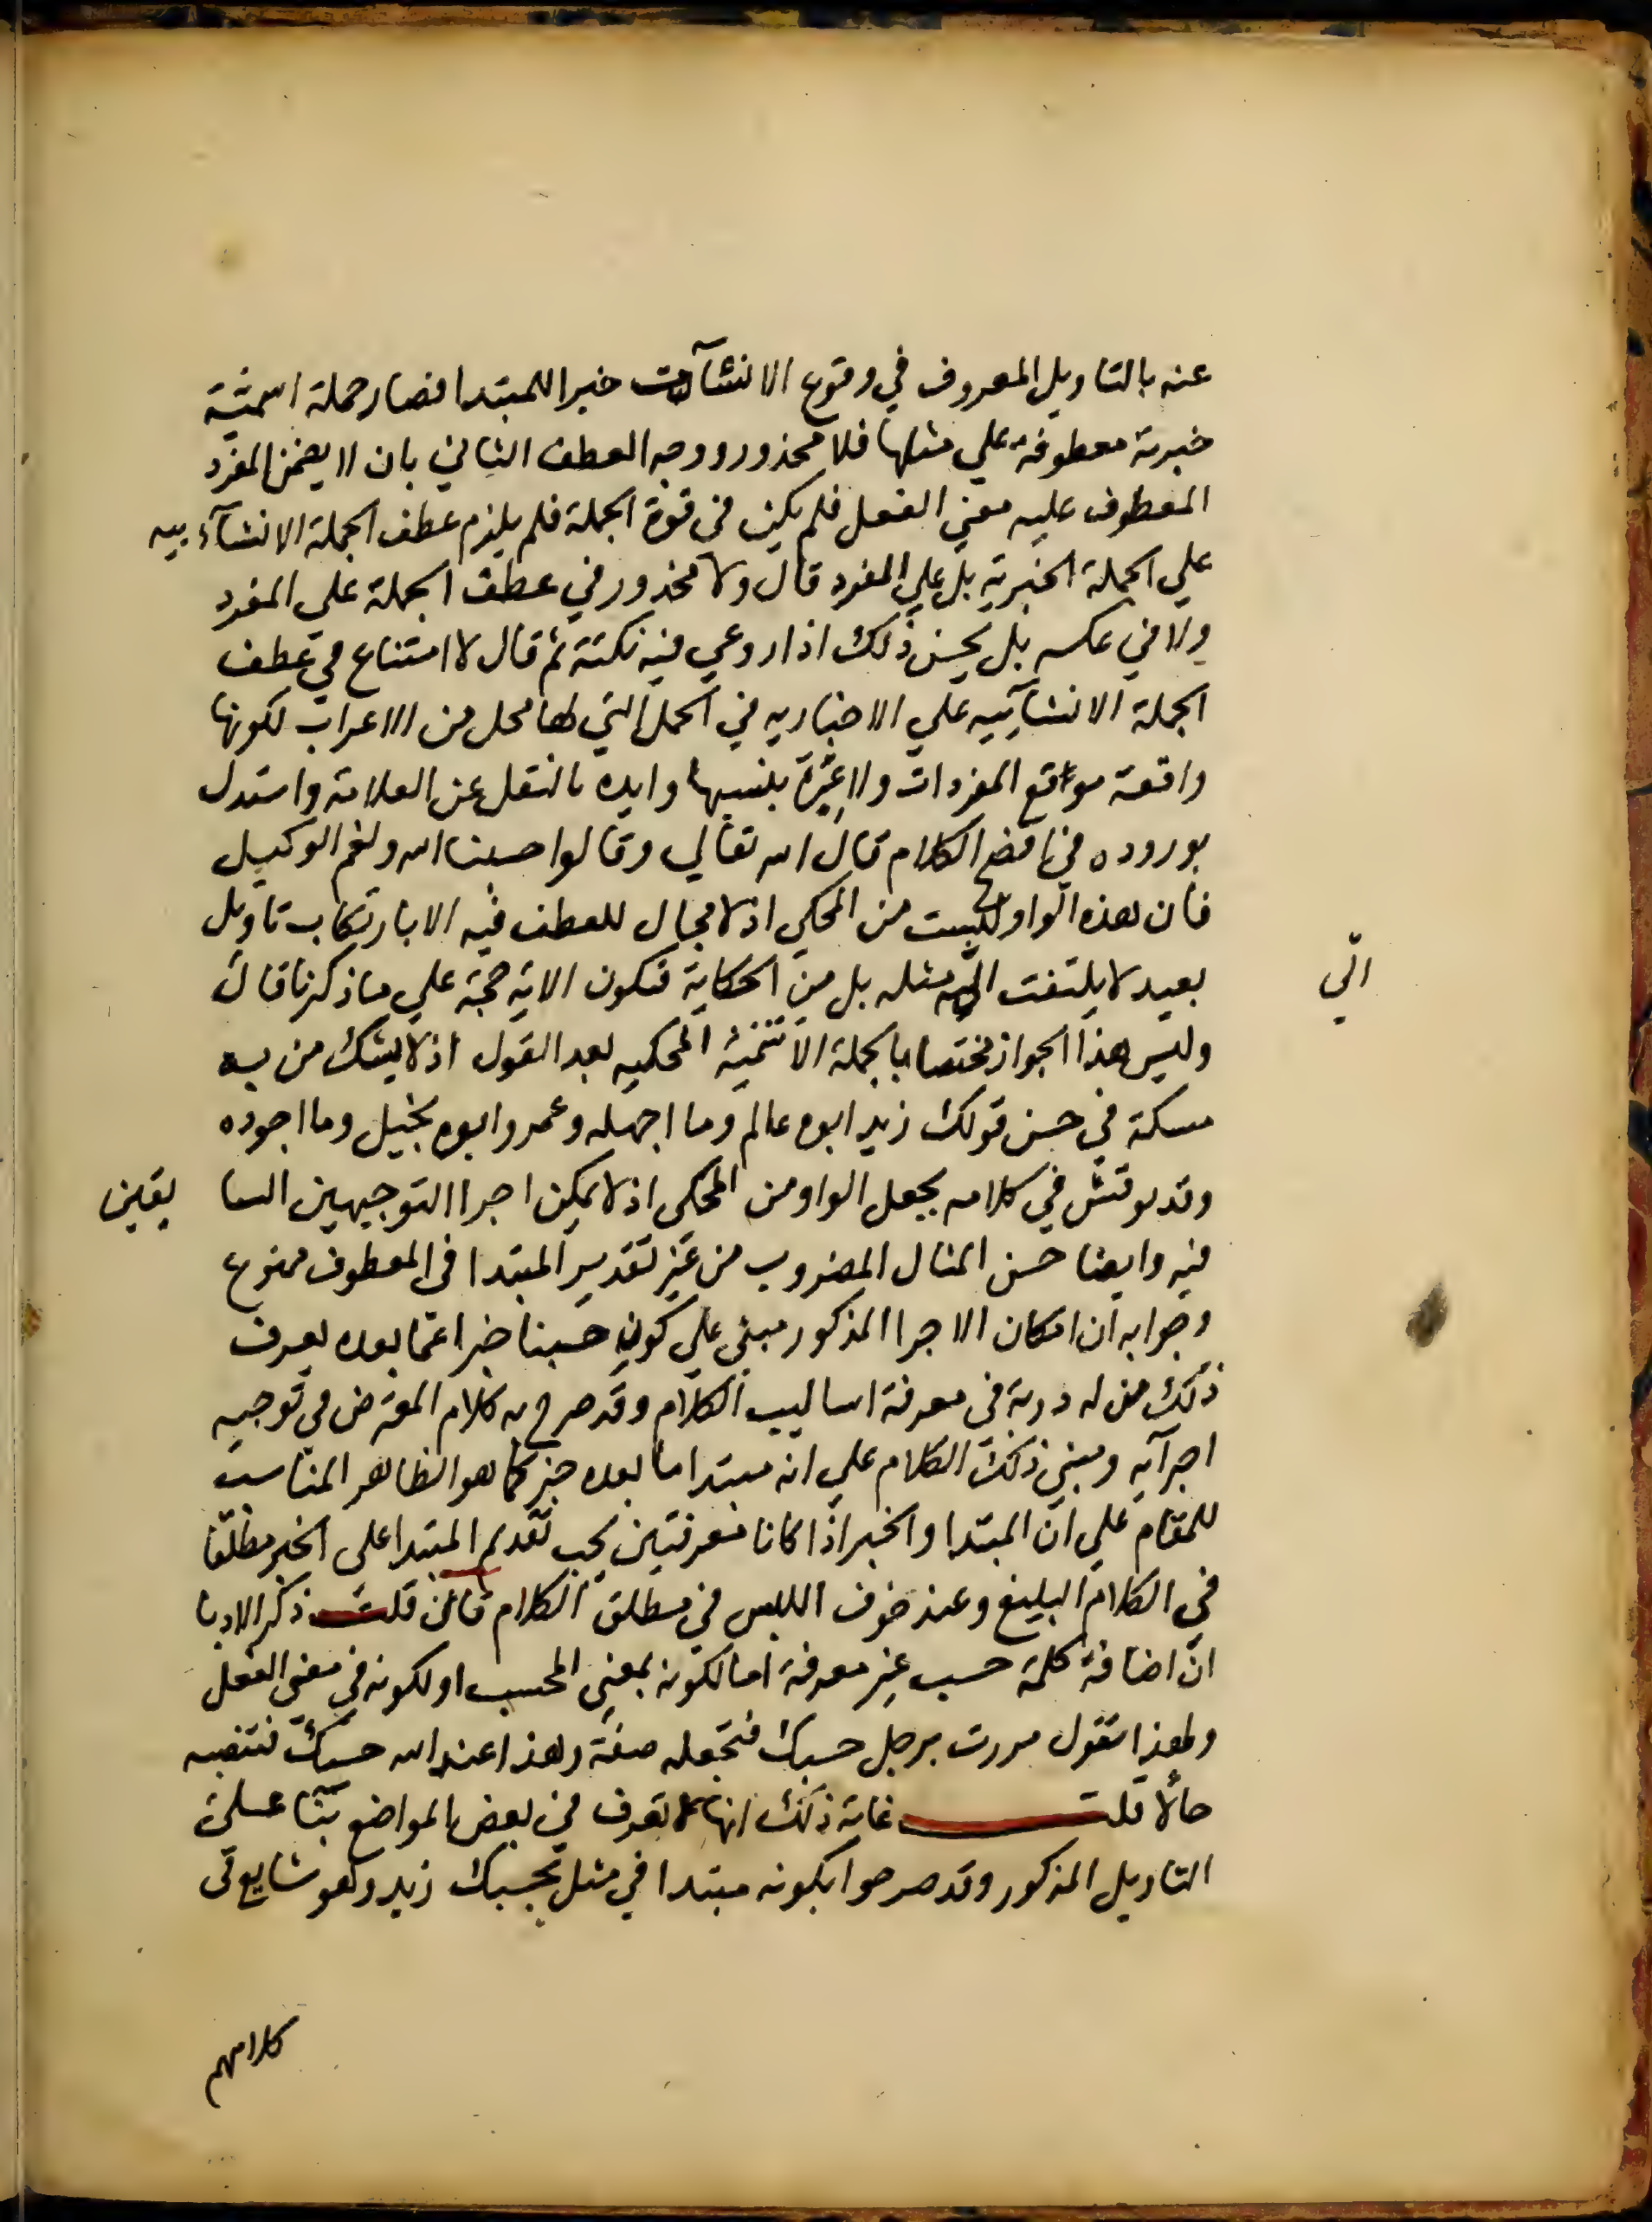 عنه بالتاويل المعروف في وقوع الانشآت خبرا للمبتدا فصار جملة اسمية
خبرية معطوفة علي مثلها فلا محذور ووجه العطف الثاني بان لا يضمن المفرد
المعطوف عليه معني الفعل فلم يكن في قوة الجملة فلم يلزم عطف الجملة الانشآءييه
علي الجملة الخبرية بل علي المفرد قال ولا محذور في عطف الجملة علي المفرد
ولا في عكسه بل يحسن ذلك اذا روعي فيه نكتة ثم قال لا امتناع في عطف
الجملة الانشآييه علي الاخباريه في الجمل التي لها محل من الاعراب لكونها
واقعة مواقع المفردات ولا عبرة بنسبها وايده بالنقل عن العلامة واستدل
بوروده في افصح الكلام قال الله تعالي وقالوا حسبنا الله ونعم الوكيل
فان هذه الواو ليست من المحكي اذ لا مجال للعطف فيه الا بارتكاب تاويل
بعيد لا يلتفت اليه مثله بل من الحكاية فتكون الاية حجة علي ما ذكرنا قال
الي
وليس هذا الجواز مختصا بالجملة المحكيه بعد القول اذ لا يشك من به
مسكة في حسن قولك زيد ابوه عالم وما اجهله وعمرو ابوه بخيل وما اجوده
وقد نوقش في كلامه بجعل الواو من المحكي اذ لا يمكن اجرا التوجيهين السا بقين
فيه وايضا حسن المثال المضروب من غير تقدير المبتدا في المعطوف ممنوع
وجوابه ان امكان الاجرا المذكور مبني علي كون حسبنا خبرا عما بعده يعرف
ذلك من له دربة في معرفة اساليب الكلام وقد صرح به كلام المعترض في توجيه
اجرآيه ومبني ذلك الكلام علي انه مبتدا ما بعده خبر كما هو الظاهر المناسب
للمقام علي ان المبتدا والخبر اذا كانا معرفتين يجب تقديم المبتدا علي الخبر مطلقا
في الكلام البليغ وعند خوف اللبس في مطلق الكلام فان قلت ذكر الادبا
ان اضافة كلمة حسب غير معرفة اما لكونه بمعني المحسب او لكونه في معني الفعل
ولهذا تقول مررت برجل حسبك فتجعله صفة وهذا عبد الله حسبك فتنصبه
حالا قلت غاية ذلك انها لا تعرف في بعض المواضع بنآ علي
التاويل المذكور وقد صرحوا بكونه مبتدا في مثل بحسبك زيد وهو شايع في
كلامهم